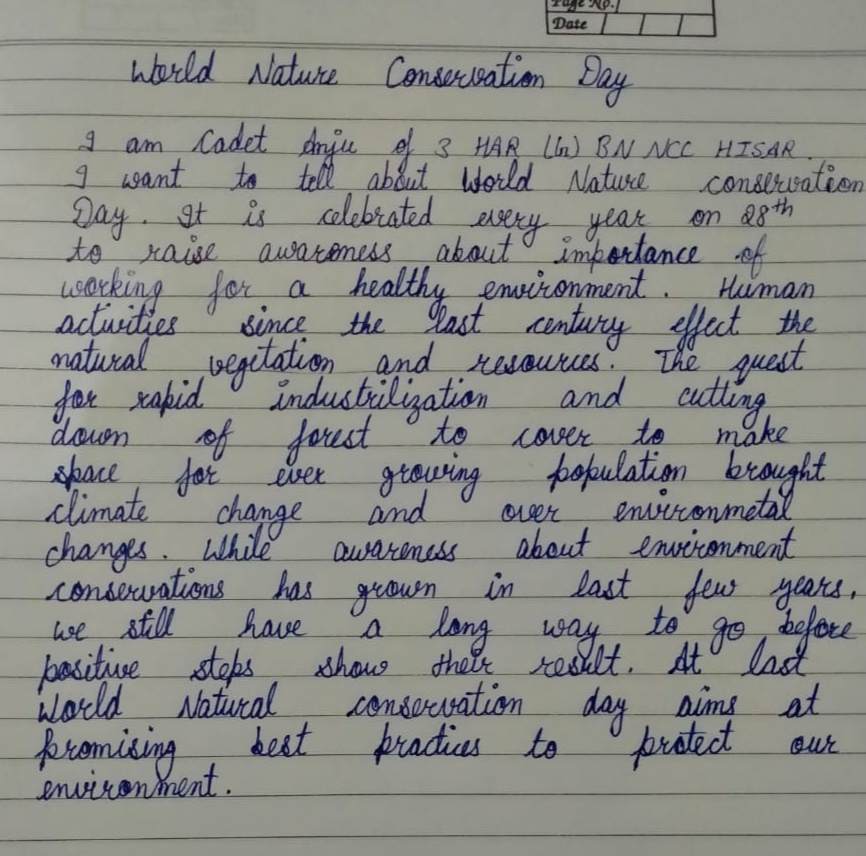 Page No.
Date
World Nature Conservation Day
I am Cadet Anju of 3 HAR (In) BN NCC HISAR.
I want to tell about World Nature conservation
Day. It is celebrated every year on 28th
to raise awareness about importance of
working for a healthy environment. Human
activities since the last century effect the
natural vegetation and resources. The quest
for rapid industrilization and cutting
down of forest to cover to make
space for ever growing population brought
climate change and over environmetal
changes. While awareness about environment
conservations has grown in last few years,
we still have a long way to go before
positive steps show their result. At last
World Natural conservation day aims at
promising best practices to protect our
environment.